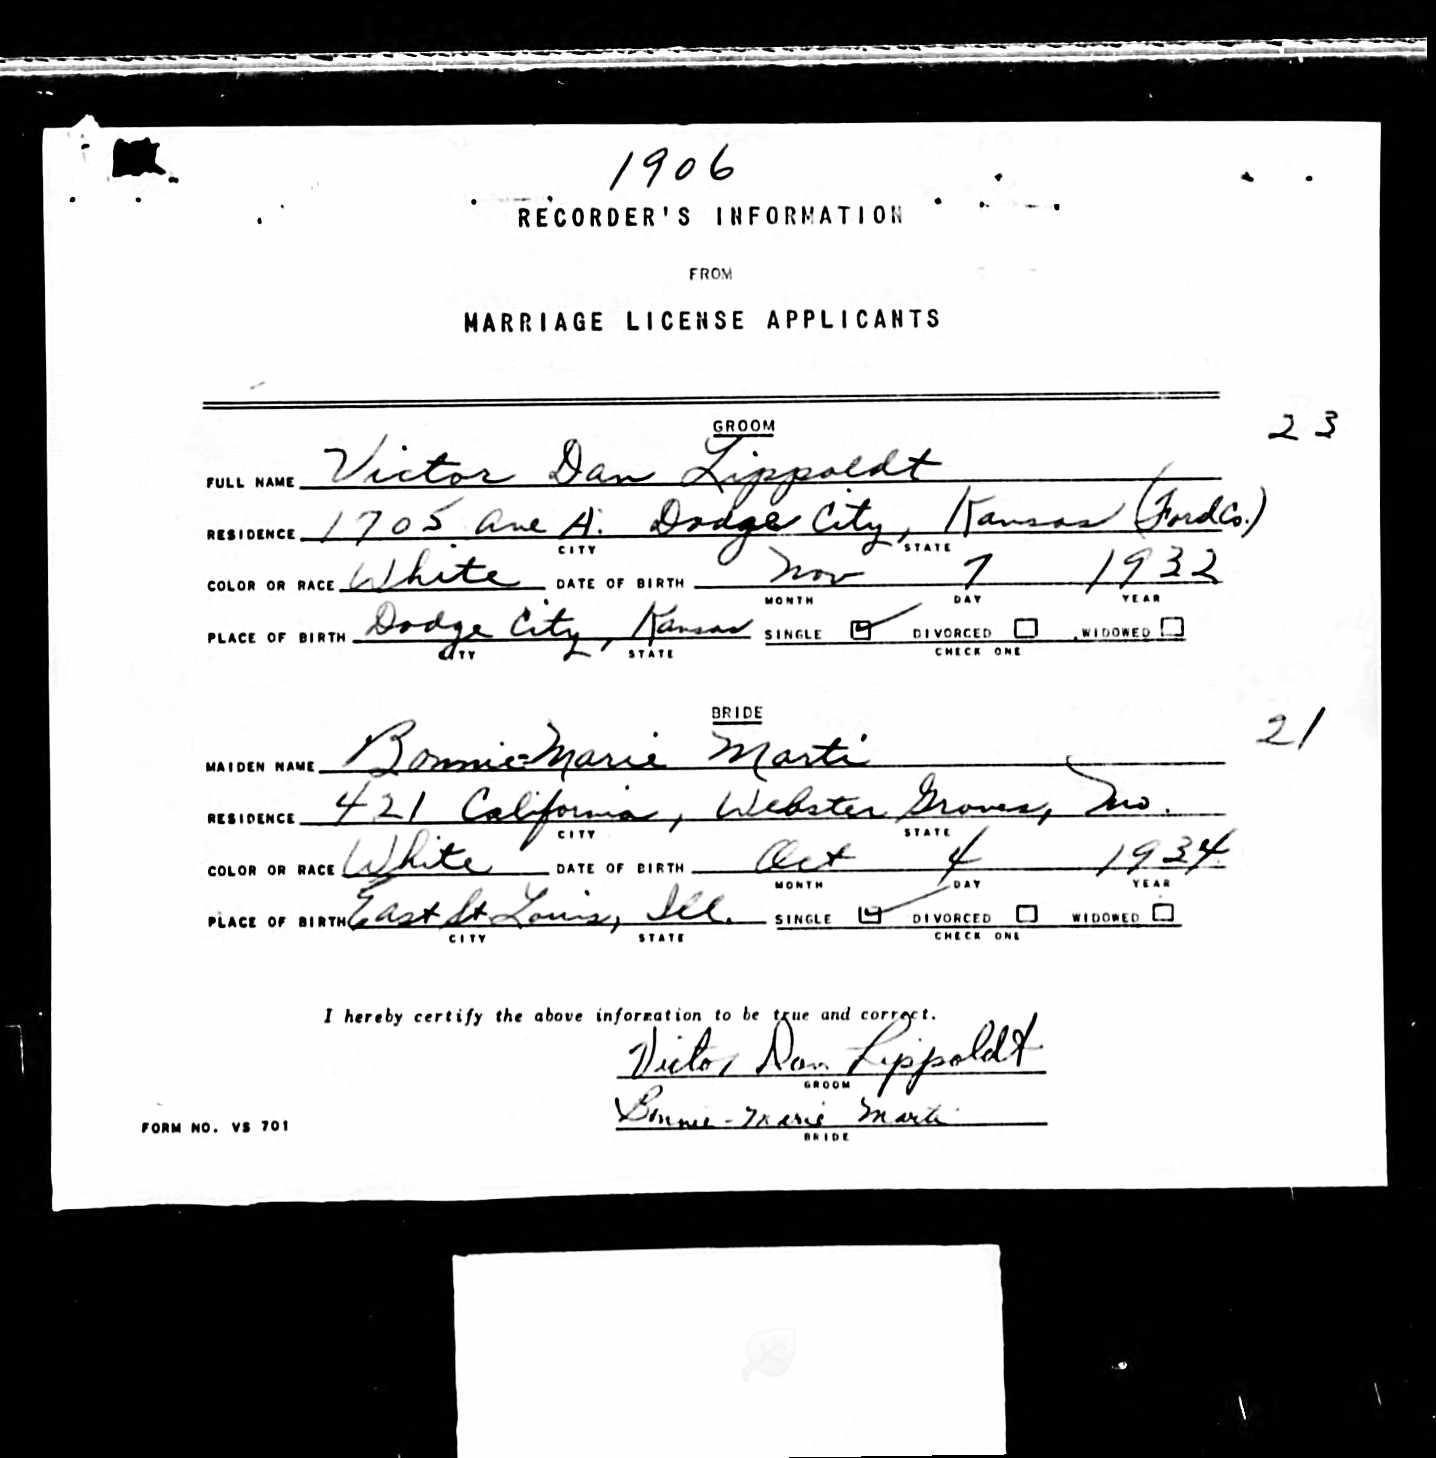 1906
RECORDER'S INFORMATION
FROM
MARRIAGE LICENSE APPLICANTS
GROOM
23
FULL NAME Victor Dan Lippoldt
RESIDENCE 1705 Ave A. Dodge City, Kansas (Ford Co.)
CITY STATE
COLOR OR RACE White DATE OF BIRTH Nov 7 1932
MONTH DAY YEAR
PLACE OF BIRTH Dodge City, Kansas SINGLE DIVORCED WIDOWED
CITY STATE CHECK ONE
BRIDE
21
MAIDEN NAME Bonnie-Marie Marti
RESIDENCE 421 California, Webster Groves, Mo.
CITY STATE
COLOR OR RACE White DATE OF BIRTH Oct 4 1934
MONTH DAY YEAR
PLACE OF BIRTH East St Louis, Ill. SINGLE DIVORCED WIDOWED
CITY STATE CHECK ONE
I hereby certify the above information to be true and correct.
Victor Dan Lippoldt
GROOM
Bonnie-Marie Marti
FORM NO. VS 701
BRIDE